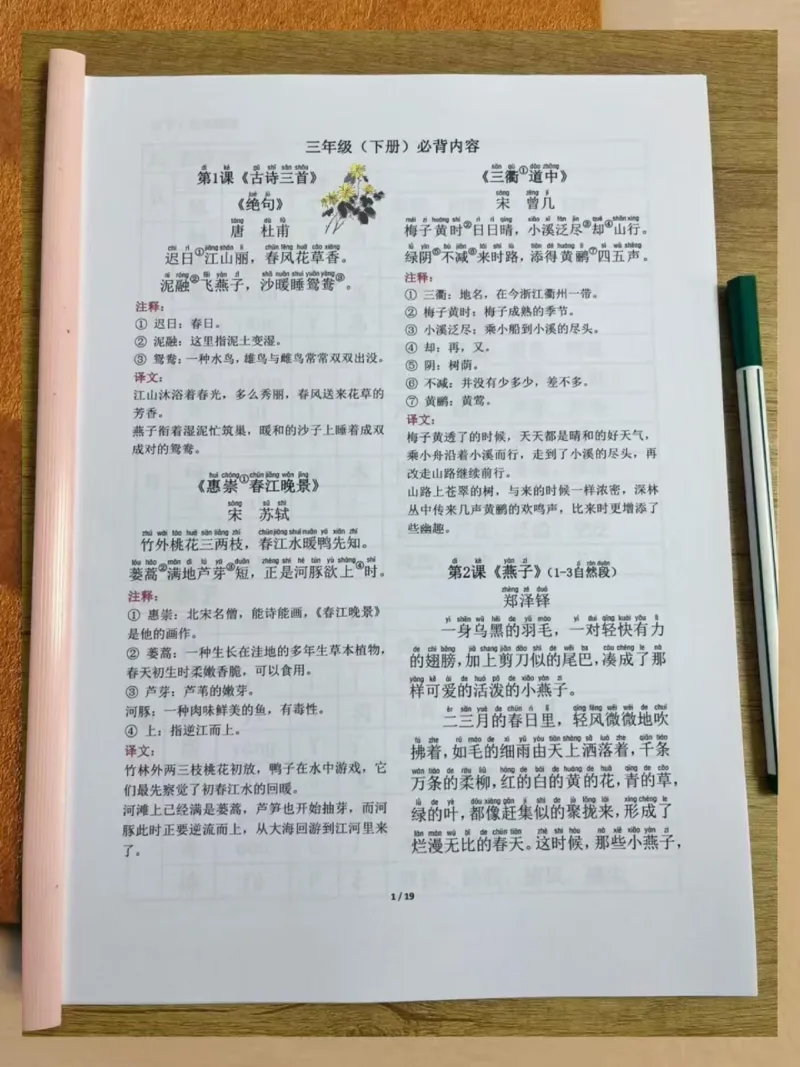 三年级（下册）必背内容
第1课《古诗三首》
《绝句》
唐 杜甫
迟日①江山丽，春风花草香。
泥融②飞燕子，沙暖睡鸳鸯③。
注释：
① 迟日：春日。
② 泥融：这里指泥土变湿。
③ 鸳鸯：一种水鸟，雄鸟与雌鸟常常双双出没。
译文：
江山沐浴着春光，多么秀丽，春风送来花草的
芳香。
燕子衔着湿泥忙筑巢，暖和的沙子上睡着成双
成对的鸳鸯。
《惠崇①春江晚景》
宋 苏轼
竹外桃花三两枝，春江水暖鸭先知。
蒌蒿②满地芦芽③短，正是河豚欲上④时。
注释：
① 惠崇：北宋名僧，能诗能画，《春江晚景》
是他的画作。
② 蒌蒿：一种生长在洼地的多年生草本植物，
春天初生时柔嫩香脆，可以食用。
③ 芦芽：芦苇的嫩芽。
河豚：一种肉味鲜美的鱼，有毒性。
④ 上：指逆江而上。
译文：
竹林外两三枝桃花初放，鸭子在水中游戏，它
们最先察觉了初春江水的回暖。
河滩上已经满是蒌蒿，芦笋也开始抽芽，而河
豚此时正要逆流而上，从大海回游到江河里来
了。
《三衢①道中》
宋 曾几
梅子黄时②日日晴，小溪泛尽③却④山行。
绿阴⑤不减⑥来时路，添得黄鹂⑦四五声。
注释：
① 三衢：地名，在今浙江衢州一带。
② 梅子黄时：梅子成熟的季节。
③ 小溪泛尽：乘小船到小溪的尽头。
④ 却：再，又。
⑤ 阴：树荫。
⑥ 不减：并没有少多少，差不多。
⑦ 黄鹂：黄莺。
译文：
梅子黄透了的时候，天天都是晴和的好天气，
乘小舟沿着小溪而行，走到了小溪的尽头，再
改走山路继续前行。
山路上苍翠的树，与来的时候一样浓密，深林
丛中传来几声黄鹂的欢鸣声，比来时更增添了
些幽趣。
第2课《燕子》（1-3自然段）
郑泽铎
一身乌黑的羽毛，一对轻快有力
的翅膀，加上剪刀似的尾巴，凑成了那
样可爱的活泼的小燕子。
二三月的春日里，轻风微微地吹
拂着，如毛的细雨由天上洒落着，千条
万条的柔柳，红的白的黄的花，青的草，
绿的叶，都像赶集似的聚拢来，形成了
烂漫无比的春天。这时候，那些小燕子，
1 / 19